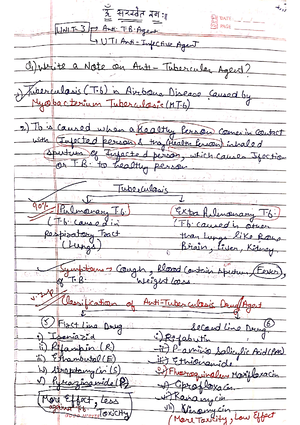 ॐ सरस्वत नमः
UNIT-3 → Anti T.B. Agent
→ UTI Anti-Infective Agent
Q) Write a Note on Anti-Tubercular Agent?
Tuberculosis (T.b) is Airborne Disease caused by
Mycobacterium Tuberculosis (MTB)
2) Tb is caused when a healthy Person comes in contact
with Infected person & they (Healthy Person) inhaled
sputum of Infected person, which causes Infection
or T.B. to healthy person
Tuberculosis
90% Pulmonary T.b. Extra Pulmonary T.b.
(T.b caused in T.b caused in other
respiratory Tract than Lungs like Bone,
(Lung) Brain, Liver, Kidney
Symptoms → Cough, Blood Contain Sputum, Fever,
of T.B. Weight Loss
v.imp Classification of Anti-Tuberculosis Drug/Agent
(5) First line Drug Second Line Drug (6)
i) Isoniazid i) Rifabutin
ii) Rifampin (R) ii) P-amino Salicylic Acid (PAS)
iii) Ethambutol (E) iii) Ethionamide
iv) Streptomycin (S) iv) Fluoroquinolone Moxifloxacin
v) Pyrazinamide (P) v) Ciprofloxacin
vi) Kanamycin
More Effect, Less vii) Viomycin
Toxicity (More Toxicity, Low Effect